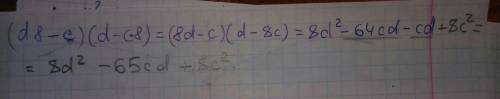 (d8-c)(d-c8)=(8d-c)(d-8c)=8d²-64cd-cd+8c²=
= 8d² -65cd +8c²